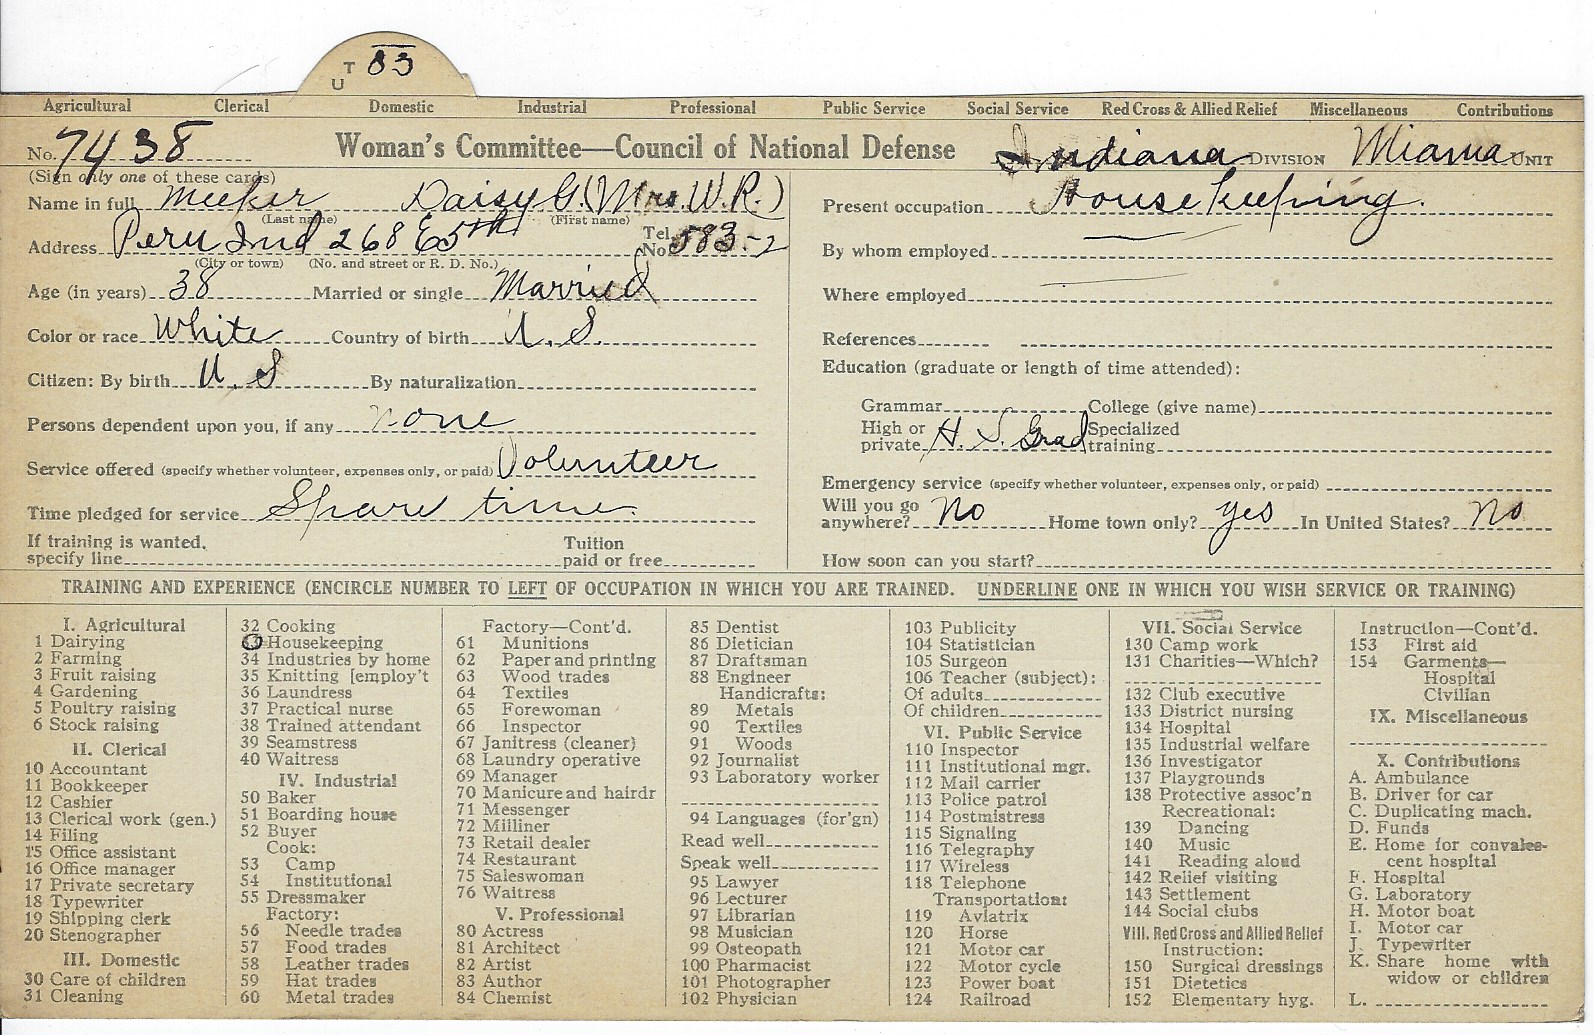 T 83
U
Agricultural Clerical Domestic Industrial Professional Public Service Social Service Red Cross & Allied Relief Miscellaneous Contributions
No. 7438 Woman's Committee—Council of National Defense Indiana DIVISION Miama UNIT
(Sign only one of these cards)
Name in full Meeker Daisy G. (Mrs. W. R.)
(Last name) (First name)
Address Peru Ind 268 E 5th Tel. No. 583-2
(City or town) (No. and street or R. D. No.)
Age (in years) 38 Married or single Married
Color or race White Country of birth U. S.
Citizen: By birth U. S By naturalization
Persons dependent upon you, if any none
Service offered (specify whether volunteer, expenses only, or paid) Volunteer
Time pledged for service Spare time.
If training is wanted, specify line Tuition paid or free
Present occupation House Keeping.
By whom employed
Where employed
References
Education (graduate or length of time attended):
Grammar College (give name)
High or private H. S. Grad Specialized training
Emergency service (specify whether volunteer, expenses only, or paid)
Will you go anywhere? No Home town only? yes In United States? No
How soon can you start?
TRAINING AND EXPERIENCE (ENCIRCLE NUMBER TO LEFT OF OCCUPATION IN WHICH YOU ARE TRAINED. UNDERLINE ONE IN WHICH YOU WISH SERVICE OR TRAINING)
I. Agricultural
1 Dairying
2 Farming
3 Fruit raising
4 Gardening
5 Poultry raising
6 Stock raising
II. Clerical
10 Accountant
11 Bookkeeper
12 Cashier
13 Clerical work (gen.)
14 Filing
15 Office assistant
16 Office manager
17 Private secretary
18 Typewriter
19 Shipping clerk
20 Stenographer
III. Domestic
30 Care of children
31 Cleaning
32 Cooking
33 Housekeeping
34 Industries by home
35 Knitting [employ't
36 Laundress
37 Practical nurse
38 Trained attendant
39 Seamstress
40 Waitress
IV. Industrial
50 Baker
51 Boarding house
52 Buyer
Cook:
53 Camp
54 Institutional
55 Dressmaker
Factory:
56 Needle trades
57 Food trades
58 Leather trades
59 Hat trades
60 Metal trades
Factory—Cont'd.
61 Munitions
62 Paper and printing
63 Wood trades
64 Textiles
65 Forewoman
66 Inspector
67 Janitress (cleaner)
68 Laundry operative
69 Manager
70 Manicure and hairdr
71 Messenger
72 Milliner
73 Retail dealer
74 Restaurant
75 Saleswoman
76 Waitress
V. Professional
80 Actress
81 Architect
82 Artist
83 Author
84 Chemist
85 Dentist
86 Dietician
87 Draftsman
88 Engineer
Handicrafts:
89 Metals
90 Textiles
91 Woods
92 Journalist
93 Laboratory worker
94 Languages (for'gn)
Read well
Speak well
95 Lawyer
96 Lecturer
97 Librarian
98 Musician
99 Osteopath
100 Pharmacist
101 Photographer
102 Physician
103 Publicity
104 Statistician
105 Surgeon
106 Teacher (subject):
Of adults
Of children
VI. Public Service
110 Inspector
111 Institutional mgr.
112 Mail carrier
113 Police patrol
114 Postmistress
115 Signaling
116 Telegraphy
117 Wireless
118 Telephone
Transportation:
119 Aviatrix
120 Horse
121 Motor car
122 Motor cycle
123 Power boat
124 Railroad
VII. Social Service
130 Camp work
131 Charities—Which?
132 Club executive
133 District nursing
134 Hospital
135 Industrial welfare
136 Investigator
137 Playgrounds
138 Protective assoc'n
Recreational:
139 Dancing
140 Music
141 Reading aloud
142 Relief visiting
143 Settlement
144 Social clubs
VIII. Red Cross and Allied Relief
Instruction:
150 Surgical dressings
151 Dietetics
152 Elementary hyg.
Instruction—Cont'd.
153 First aid
154 Garments—
Hospital
Civilian
IX. Miscellaneous
X. Contributions
A. Ambulance
B. Driver for car
C. Duplicating mach.
D. Funds
E. Home for convales-
cent hospital
F. Hospital
G. Laboratory
H. Motor boat
I. Motor car
J. Typewriter
K. Share home with
widow or children
L.